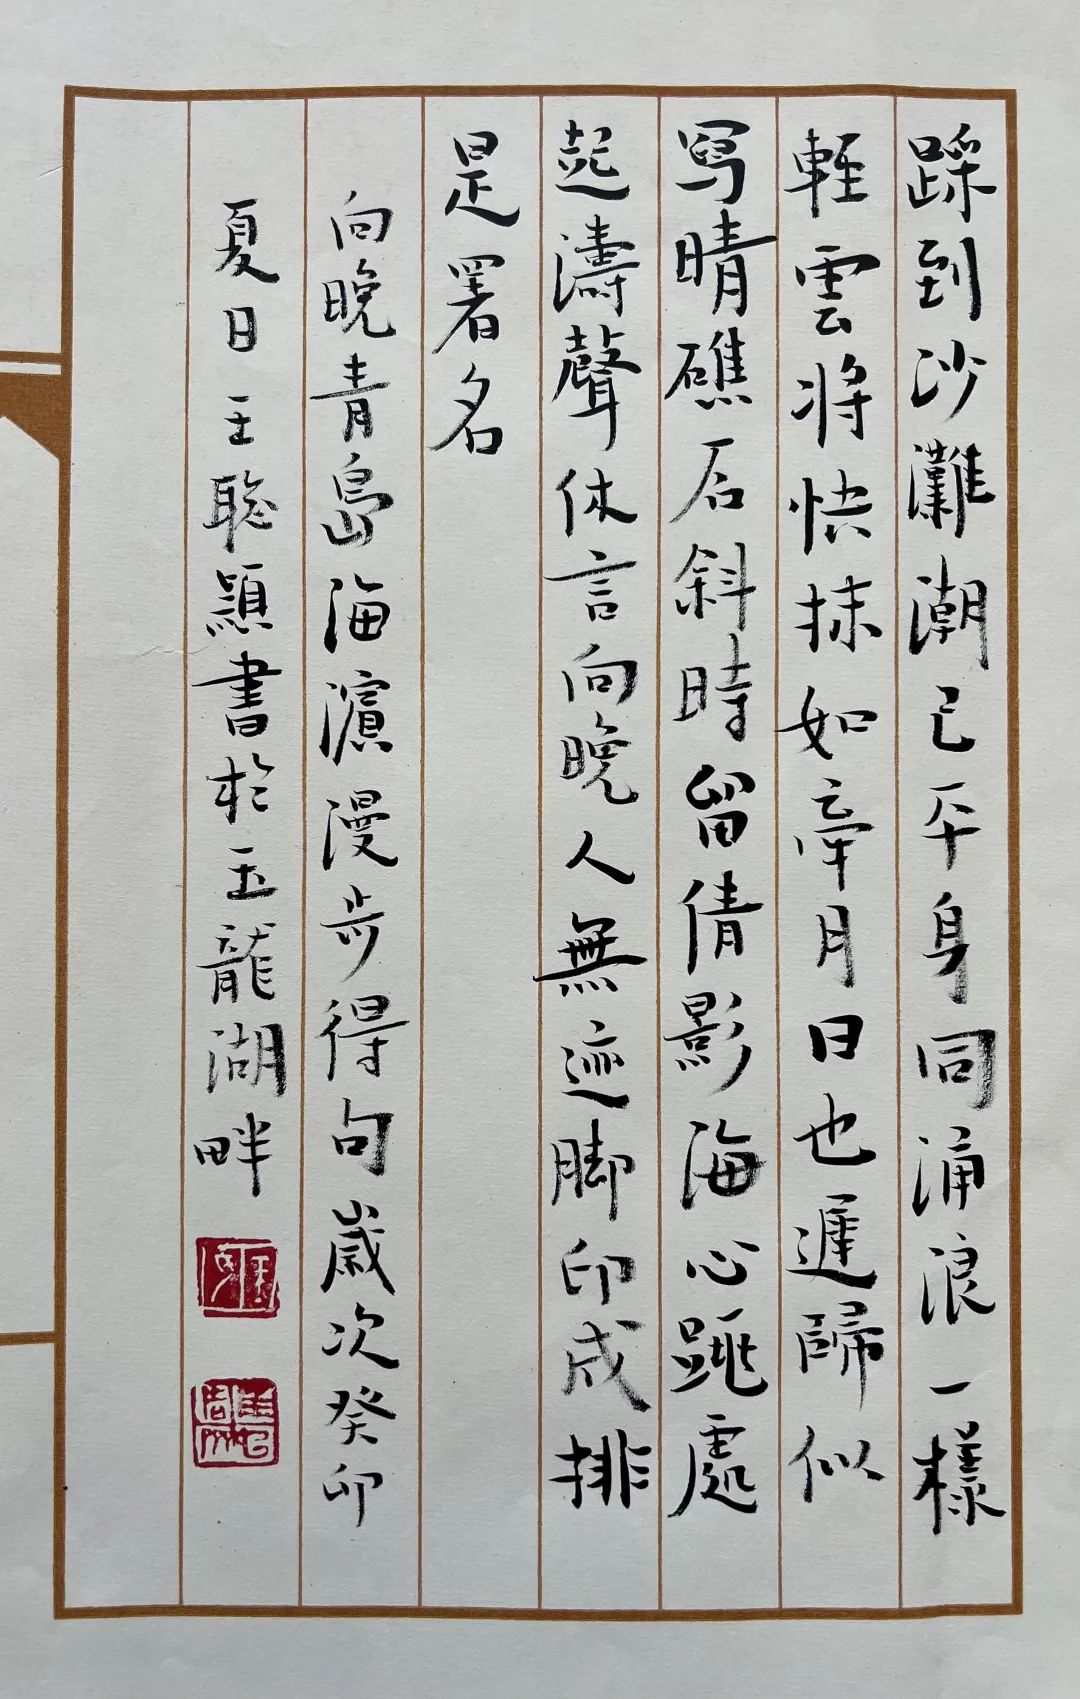 踩到沙灘潮已平身同涌浪一樣
輕雲將快抹如牽月日也遲歸似
寫晴礁石斜時留倩影海心跳處
起濤聲休言向晚人無迹脚印成排
是署名
向晚青島海濱漫步得句歲次癸卯
夏日王聰穎書於玉龍湖畔